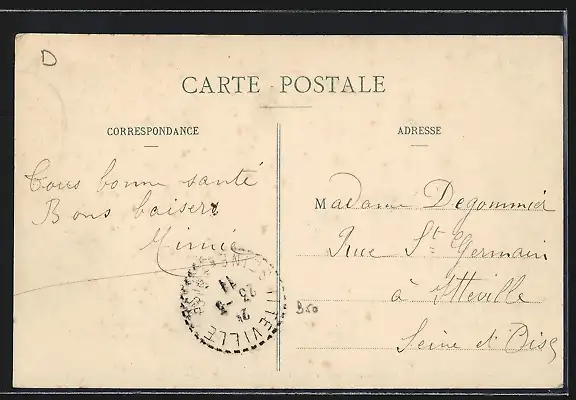 D
CARTE POSTALE
CORRESPONDANCE
ADRESSE
Tous bonne santé
Bons baisers
Mimie
Madame Degommier
Rue St Germain
à Itteville
Seine et Oise
ITTEVILLE
24 -3
23
11
B50